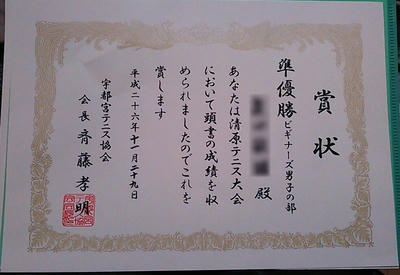 賞状
準優勝 ビギナーズ男子の部
殿
あなたは清原テニス大会
において頭書の成績を収
められましたのでこれを
賞します
平成二十六年十一月二十九日
宇都宮テニス協会
会長 斉藤孝明